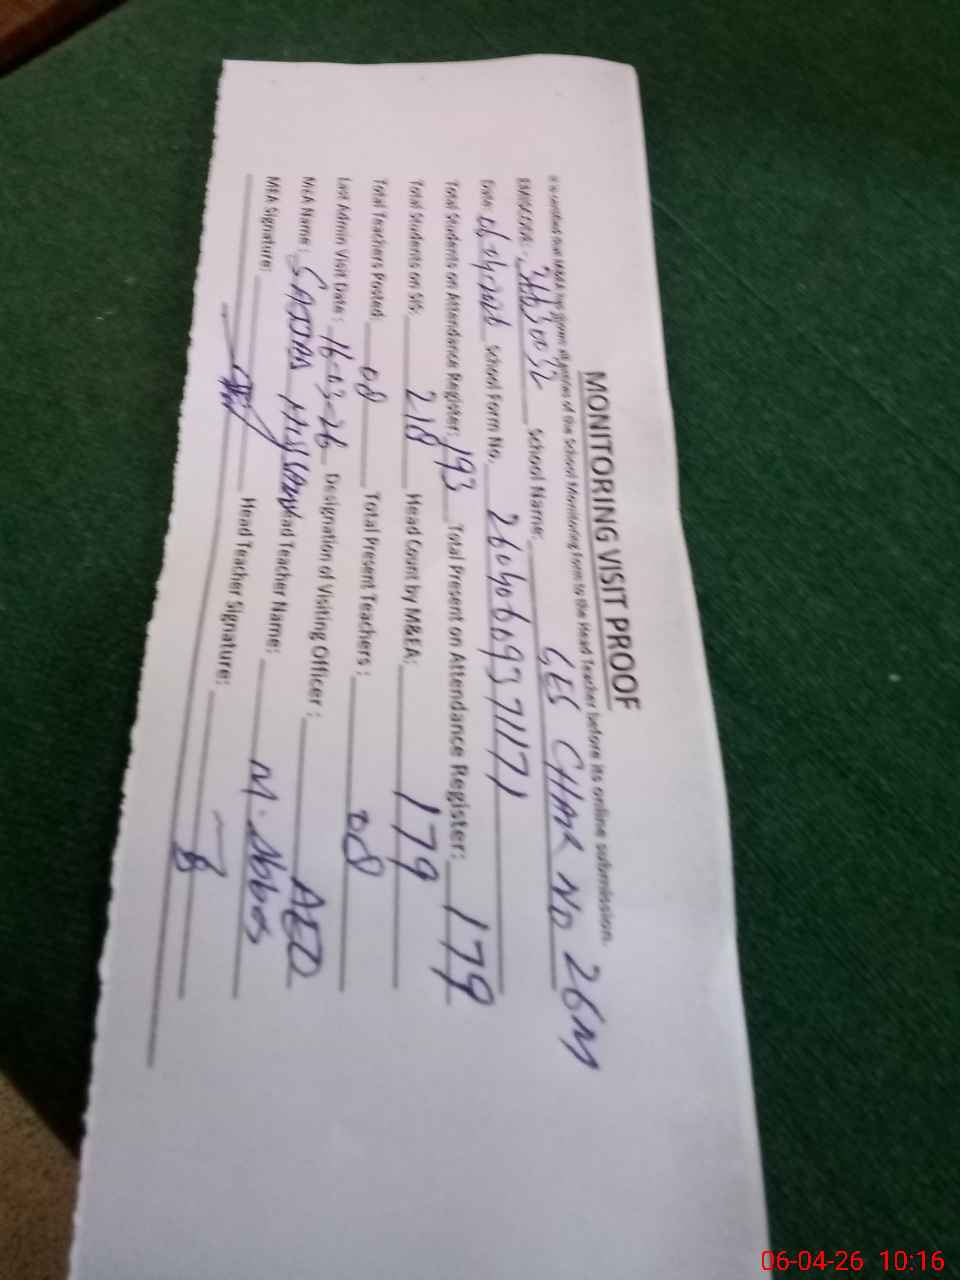 MONITORING VISIT PROOF
It is certified that M&EA has given all entries of the School Monitoring Form to the Head Teacher before its online submission.
EMISCODE: 36630032 School Name: GES CHAK NO 26M
Date: 06-04-2026 School Form No. 2604060937171
Total Students on Attendance Register: 193 Total Present on Attendance Register: 179
Total Students on SIS: 218 Head Count by M&EA: 179
Total Teachers Posted: 08 Total Present Teachers: 08
Last Admin Visit Date: 16-03-26 Designation of Visiting Officer: AEO
MEA Name: SAJJAD HUSSAIN Head Teacher Name: M. Abbas
MEA Signature: Head Teacher Signature:
06-04-26 10:16